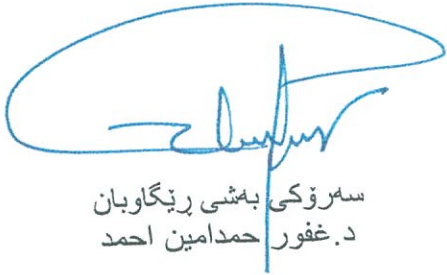 سەرۆکی بەشی ڕێگاوبان
د.غفور حمدامین احمد